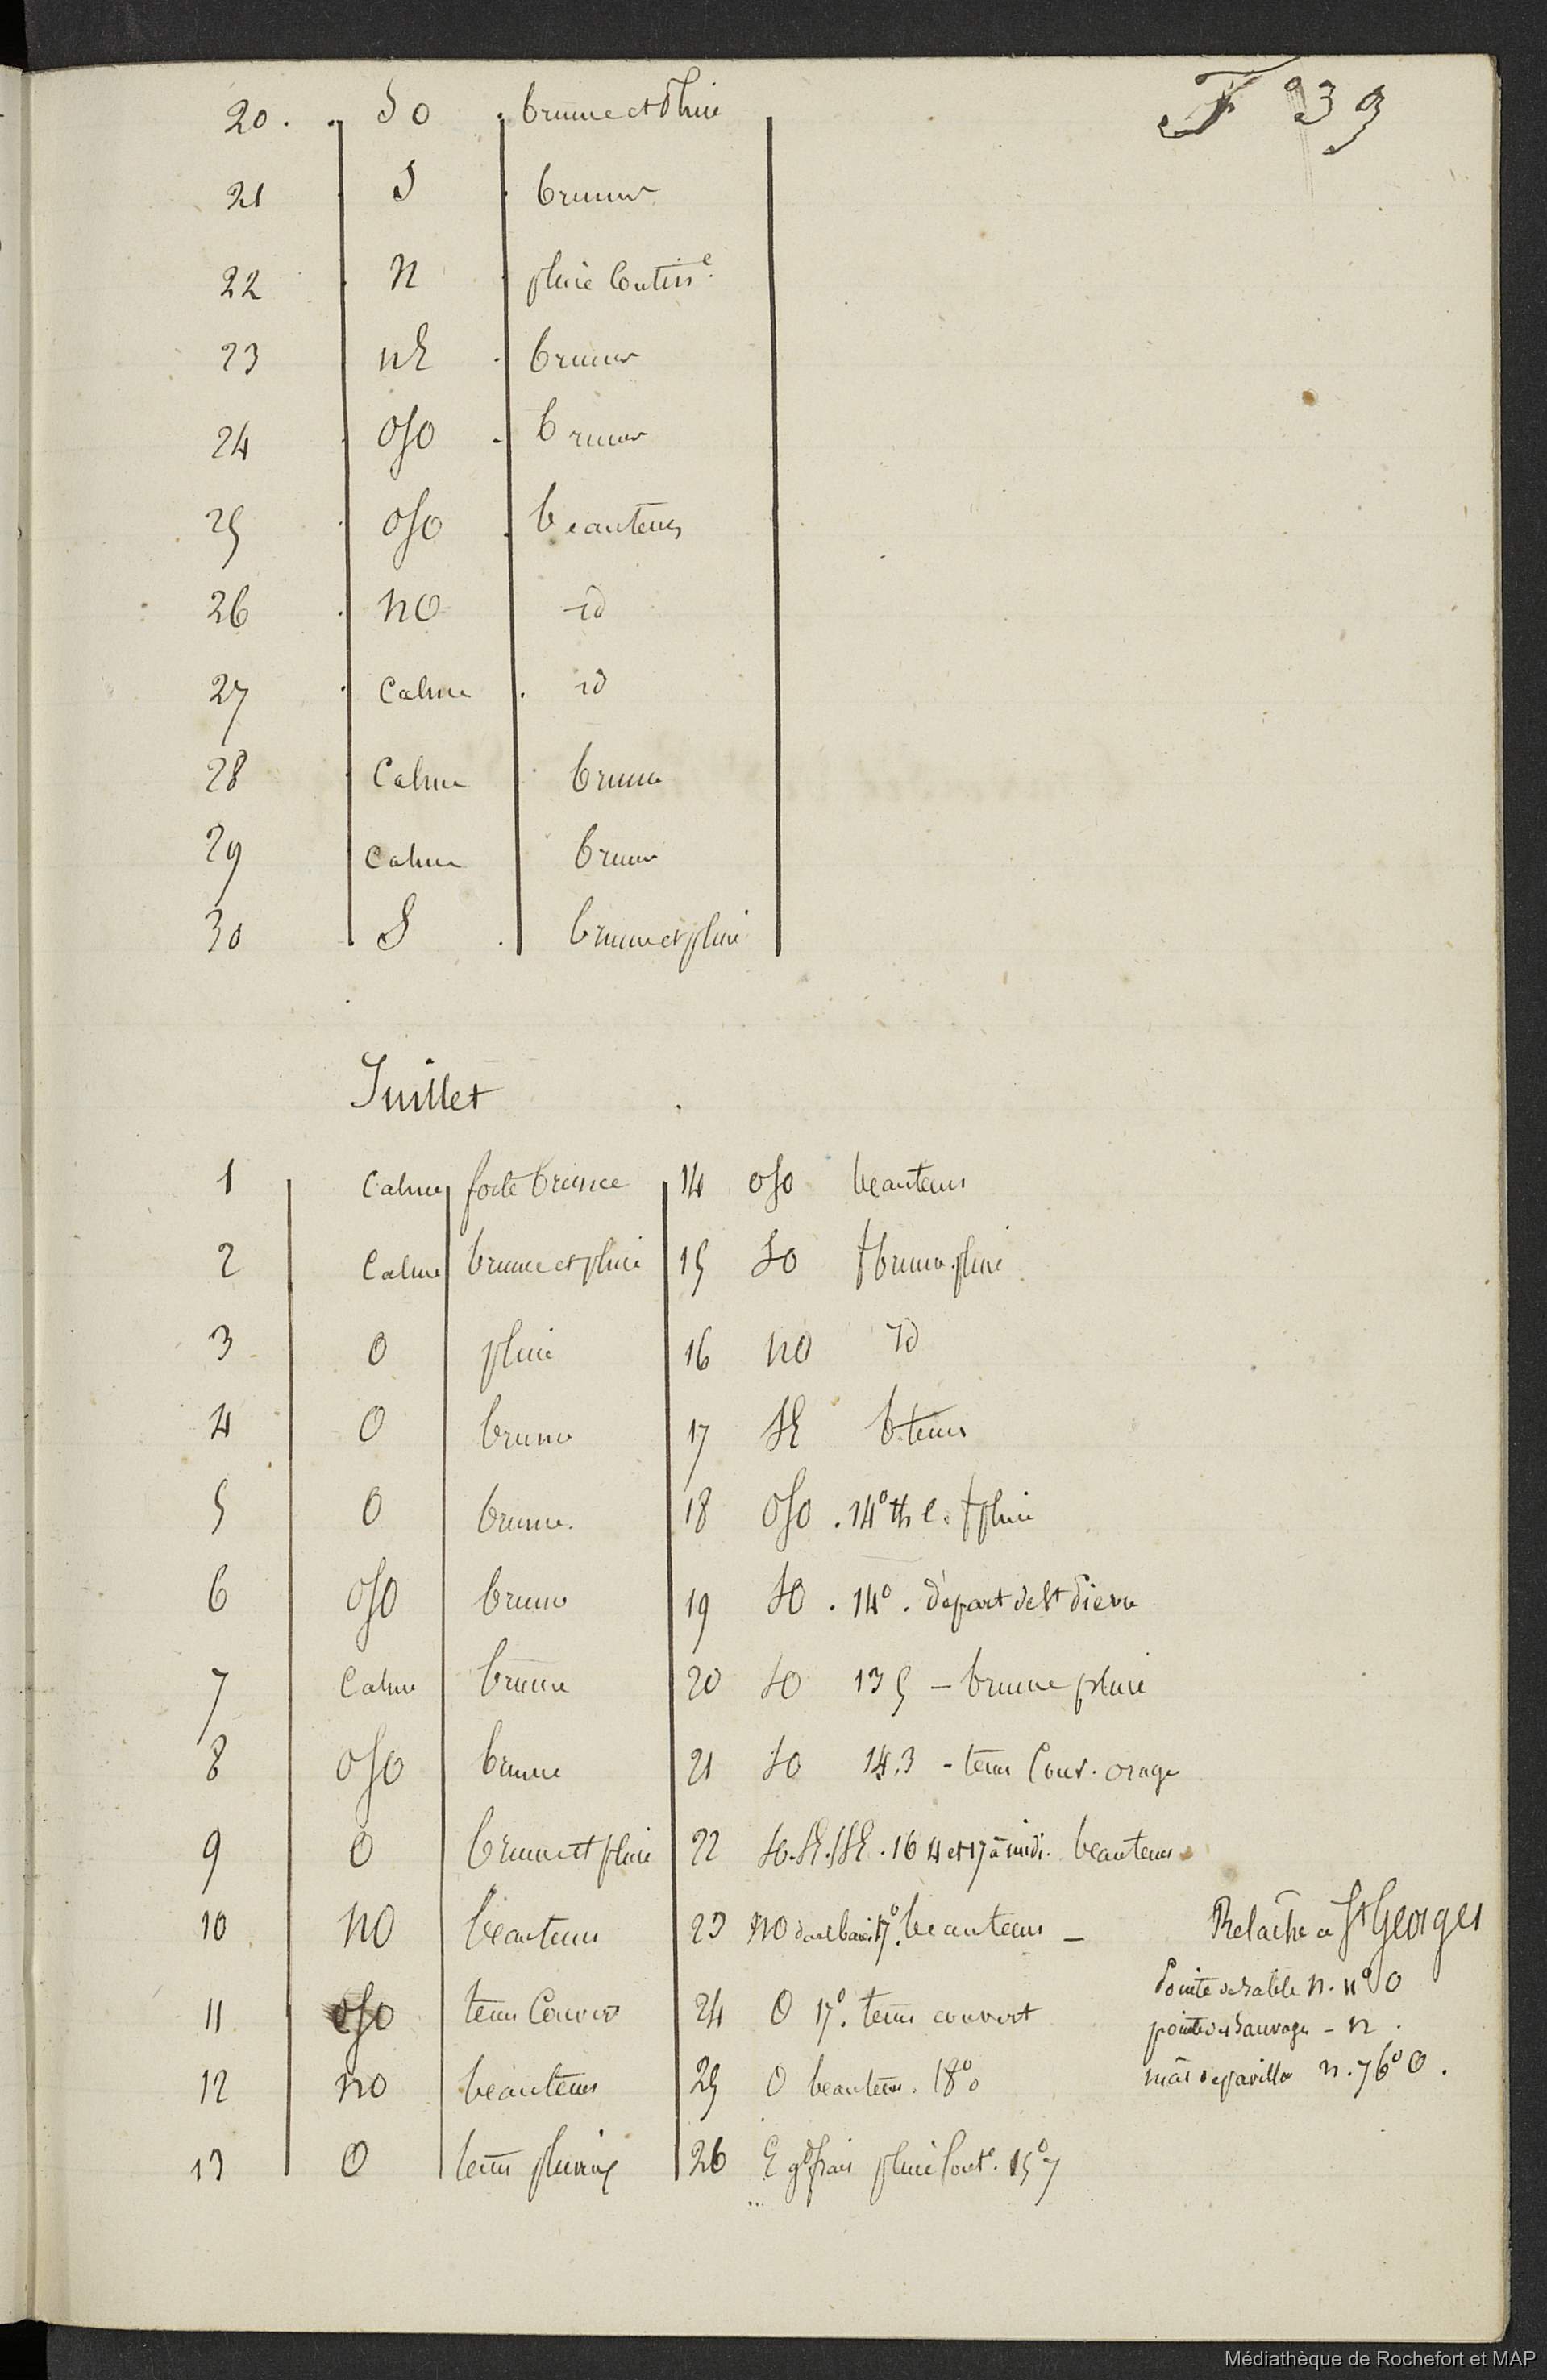 F 39
20. SO brume et Pluie
21 S brume
22 N pluie Contin.e
23 NE brume
24 OSO brume
25 OSO beautems
26 NO id
27 Calme id
28 Calme brume
29 Calme brume
30 S brume et pluie
Juillet
1 Calme forte brume
2 Calme brume et pluie
3 O pluie
4 O brume
5 O brume.
6 OSO brume
7 Calme brume
8 OSO brume
9 O brume et pluie
10 NO beautems
11 OSO tems Couvert
12 NO beautems
13 O tems pluvieux
14 OSO beautems
15 SO f brume. pluie
16 NO id
17 SE b. tems
18 OSO . 14° th c. f pluie
19 SO . 14° . départ de St Pierre
20 SO 13 5 – brume pluie
21 SO 14.3 - tems Couv. orage
22 SO. SE. SSE . 16 4 et 17 à midi. beautems
23 NO dans la baie 17°. beautems –
24 O 17°. tems couvert
25 O beautems. 18°
26 E gd frais pluie fort. 15° 7
Relâche à St Georges
Pointe de sable N. 4° O
pointe du Sauvage - N .
mât de pavillon N. 76° O .
Médiathèque de Rochefort et MAP